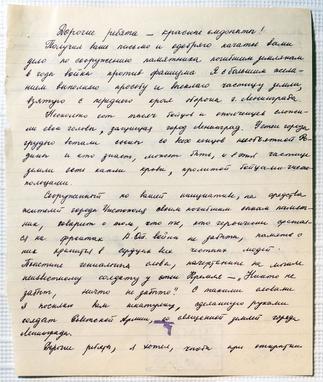 Дорогие ребята – красные следопыты!
Получил ваше письмо и одобряю начатое вами
дело по сооружению памятника погибшим землякам
в годы войны против фашизма. И с большим жела-
нием выполняю просьбу и высылаю частицу земли,
взятую с переднего края обороны г. Ленинграда.
Несколько сот тысяч бойцов и ополченцев сложи-
ли свои головы, защищая город Ленинград. У стен города
грудью встали сыны со всех концов необъятной Ро-
дины и кто знает, может быть, и в этой частице
земли есть капли крови, пролитой бойцами-чисто-
польцами.
Сооруженный по вашей инициативе, на средства
жителей города Чистополя своим погибшим землякам памят-
ник, говорит о том, что те, кто героически сражал-
ся на фронтах В.От. войны не забыты, память о
них хранится в сердцах всех честных людей.
Поистине гениальны слова, начертанные на могиле
неизвестному солдату у стен Кремля –, Никто не
забыт, ничто не забыто". С такими словами
я посылаю вам шкатулку, сделанную руками
солдат Советской Армии, со священной землей города
Ленинграда.
Дорогие ребята, я хотел, чтобы при открытии